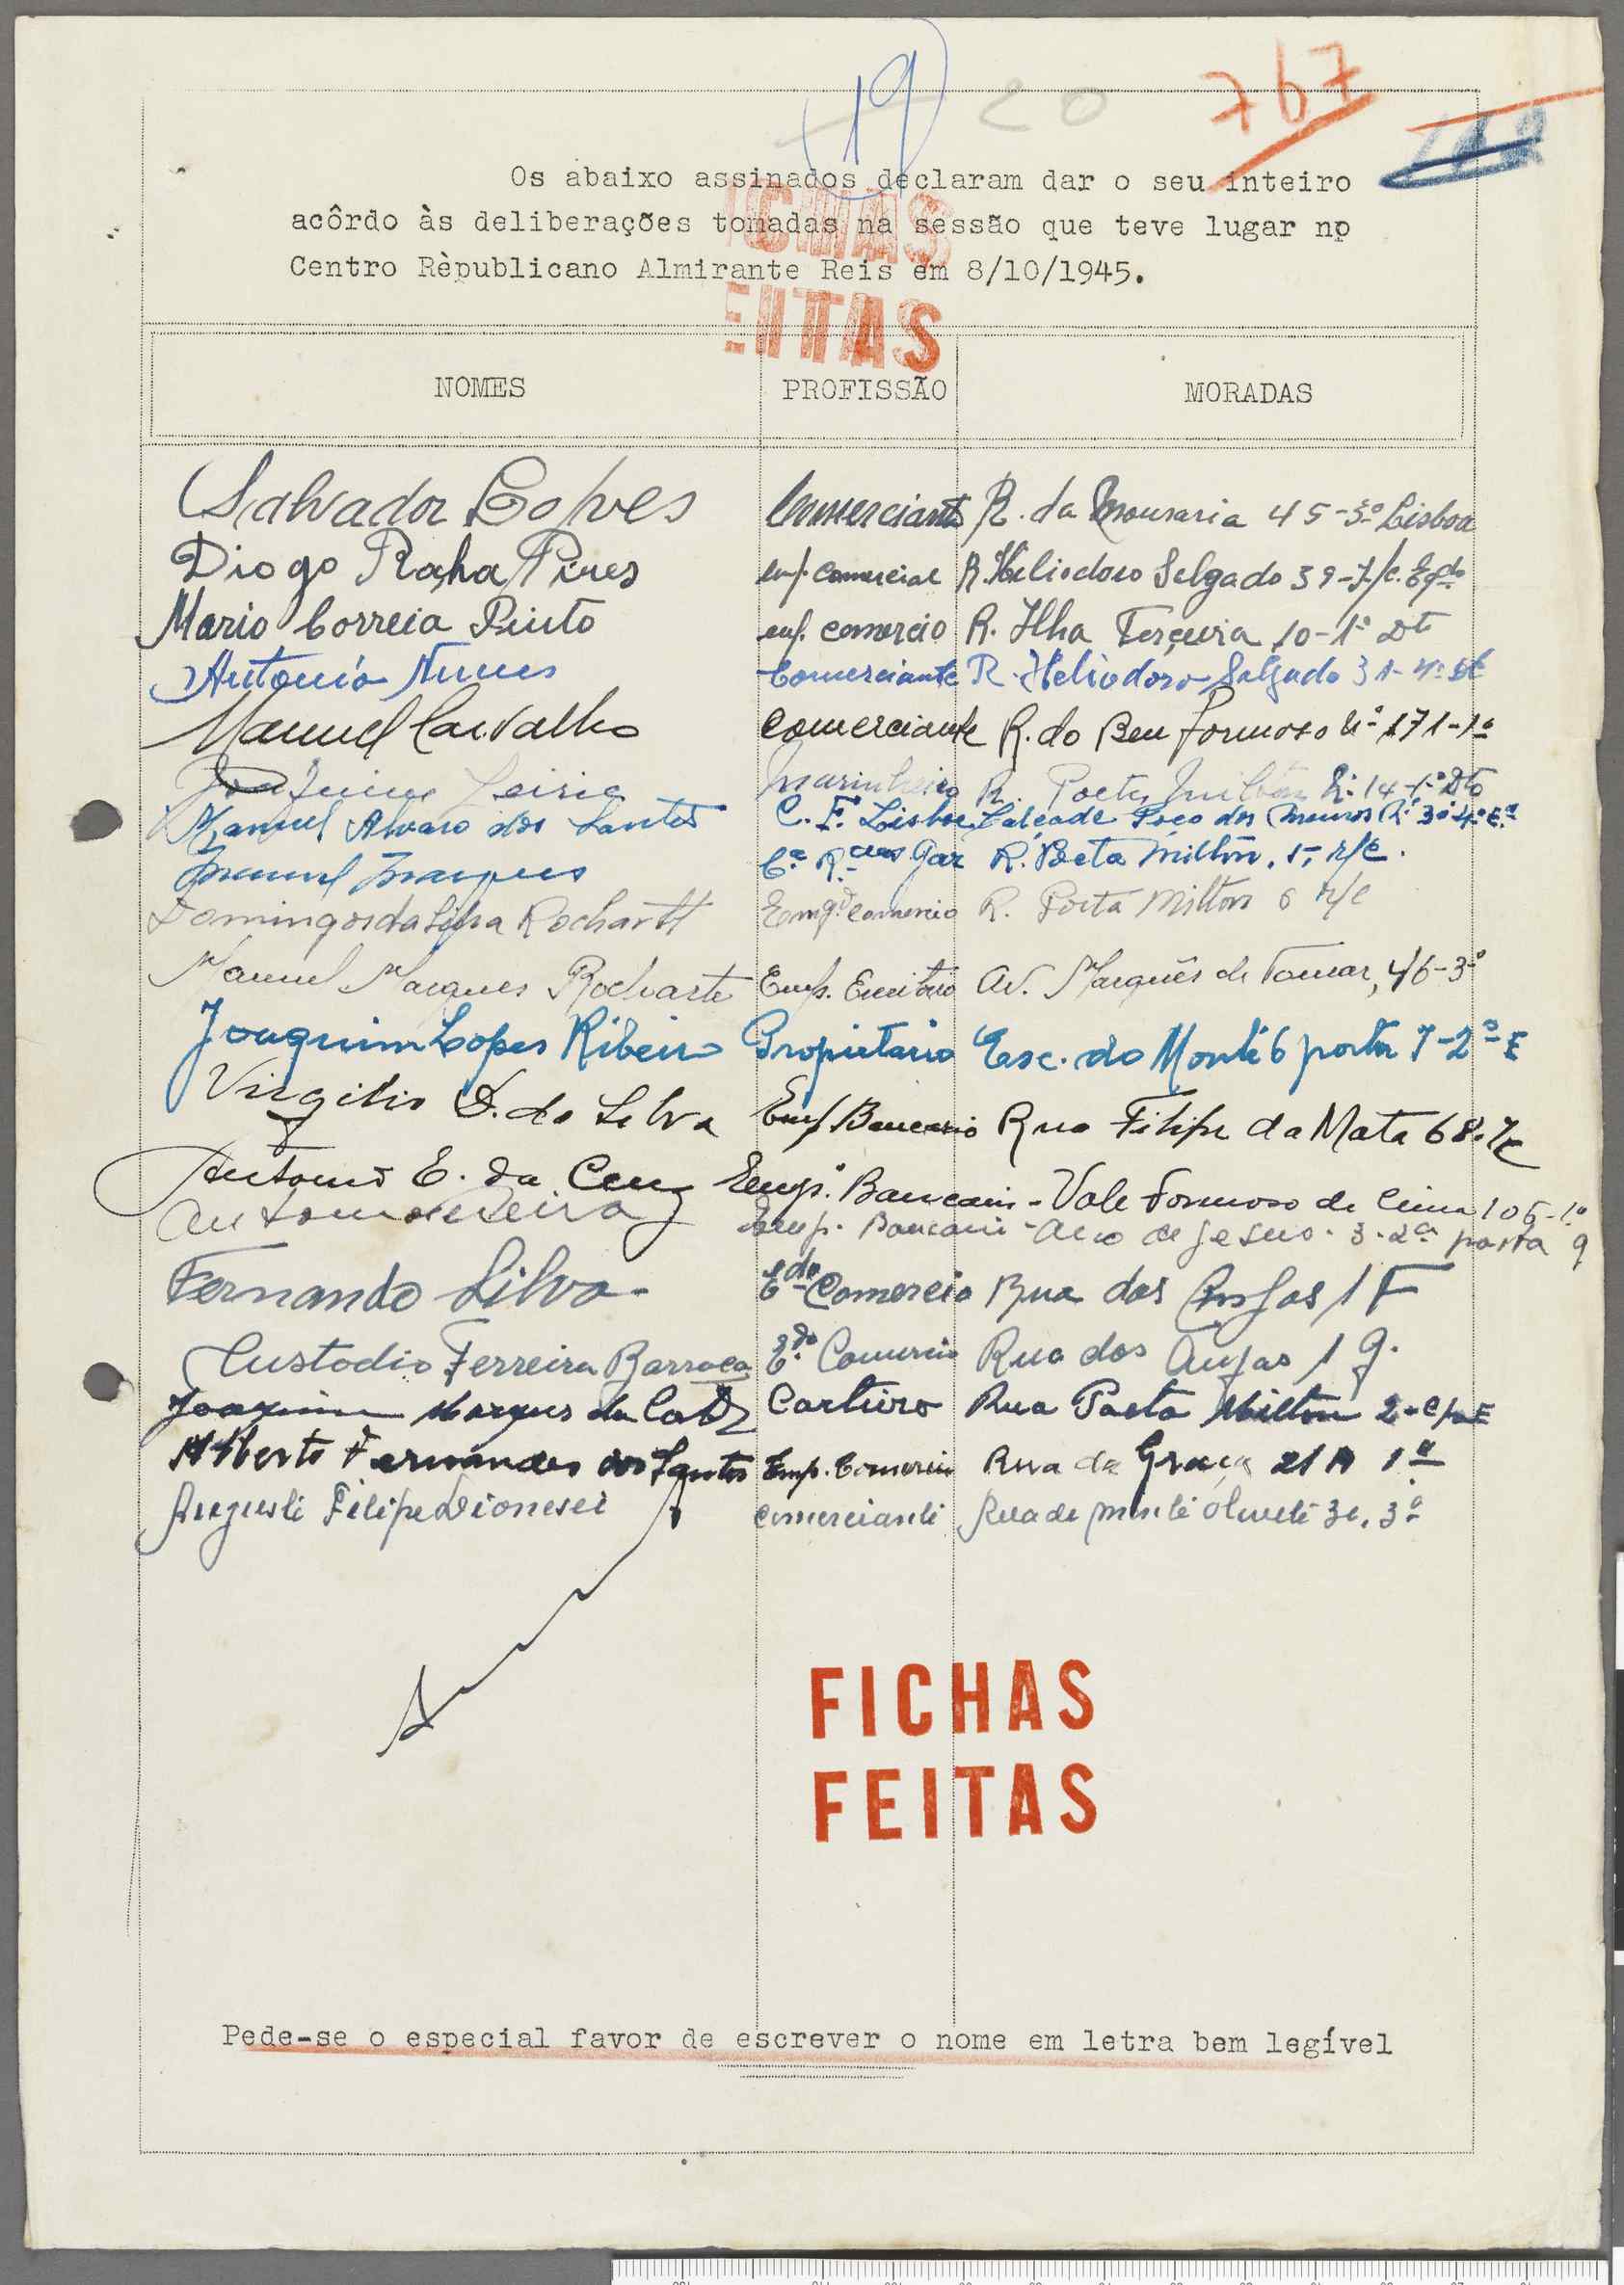 19
20
767
Os abaixo assinados declaram dar o seu inteiro
acôrdo às deliberações tomadas na sessão que teve lugar no
Centro Rèpublicano Almirante Reis em 8/10/1945.
ICHAS
EITAS
NOMES PROFISSÃO MORADAS
Salvador Lopes Comerciante R. da Mouraria 45-3º Lisboa
Diogo Rocha Pires emp. comercial R. Heliodoro Salgado 39-r/c. Eqdo
Mario Correia Pinto emp. comercio R. Ilha Terçeira 10-1º Dtº
Antonio Nunes Comerciante R. Heliodoro Salgado 31-4º Dt
Manuel Carvalho comerciante R. do Bem formoso nº 171-1º
Joaquim Leiria Marinheiro R. Poeta Milton Nº 14-1º Dto
Manuel Alvaro dos Santos C. F. Lisboa Calçada Poço dos Mouros Nº 3-4º E.
Manuel Marques Cª Rªs Gaz R. Poeta Milton, 1, r/c.
Domingos da Silva Rochartt Empº comercio R. Poeta Milton 6 r/c
Manuel Marques Rochartt Emp. Escritorio Av. Marquês de Tomar, 46-3º
Joaquim Lopes Ribeiro Propietario Esc. do Monte 6 porta 7-2º E
Virgilio D. da Silva Emp Bancario Rua Filipe da Mata 68. r/c
Antonio E. da Cruz Empº. Bancario - Vale formoso de Cima 105-1º
Antonio Vieira Emp. Bancario - Arco de Jesus. 3-2º porta 9
Fernando Silva - Edo Comercio Rua dos Anjos 1 F
Custodio Ferreira Barroca Edo Comercio Rua dos Anjos 1 G.
Joaquim Marques da Costa Carteiro Rua Poeta Milton 2-c/v E
Alberto Fernandes dos Santos Emp. Comercio Rua da Graça 21 A 1º
Augusto Filipe Dionesei comerciante Rua de Monte Olivete 30, 3º
FICHAS
FEITAS
Pede-se o especial favor de escrever o nome em letra bem legível